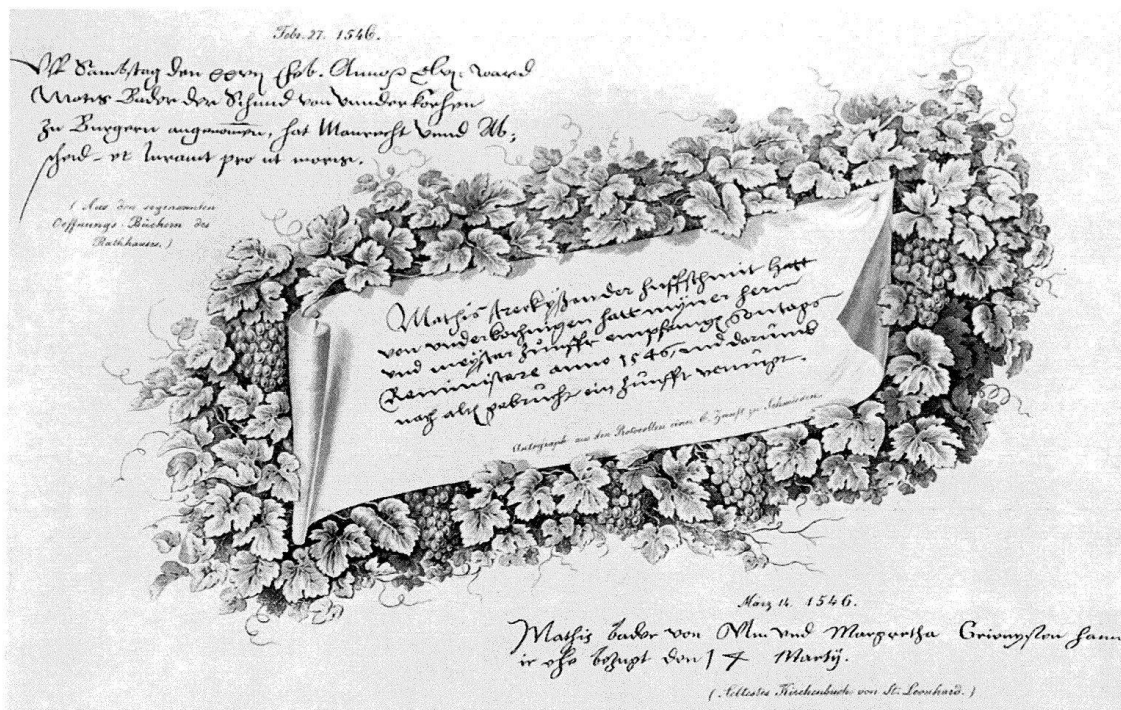 Febr. 27. 1546.
Uff Sambstag den xxvij Feb. Anno xlvj. ward
Mathis Bader der Schmid von Vnderkochen
zu Burgern angenommen, hat Manrecht vnnd Ab-
scheid et Iuravit pro ut moris.
( Aus den sogenannten
Oeffnungs-Büchern des
Rathhauses. )
Mathis der huffschmit hatt
von vnderkochingen hatt myner hern
vnd meyster zunfft empfangen Sontags
Reminiscere anno 1546, vnd darumb
nach altem gebruch ein zunfft
Autograph aus den Protocollen einer E. Zunft zu Schmieden.
März 14. 1546.
Mathis bader von Vlm vnd Margretha hann
ir ehe bezügt den 14 Martij.
( Aeltestes Kirchenbuch von St. Leonhard. )